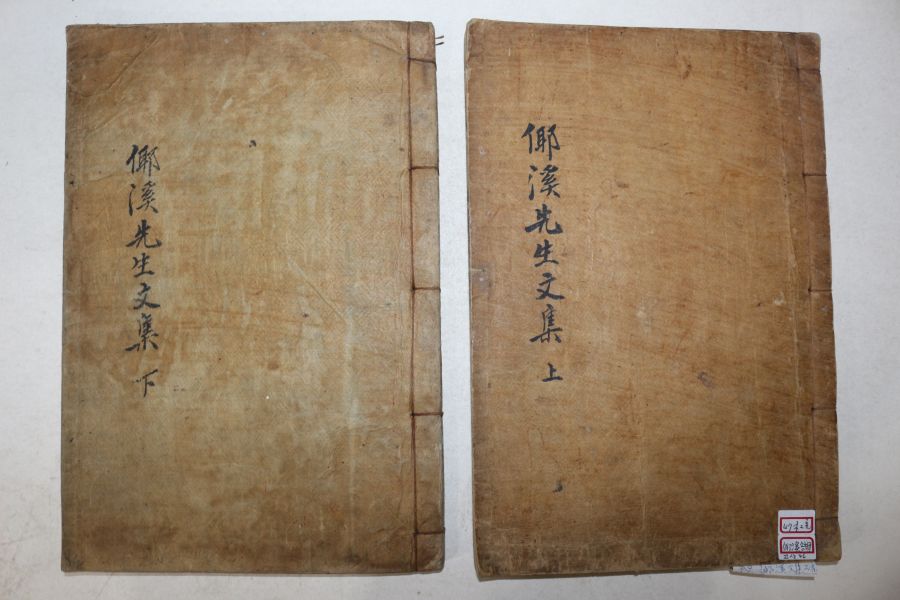 倻溪先生文集 上
倻溪先生文集 下